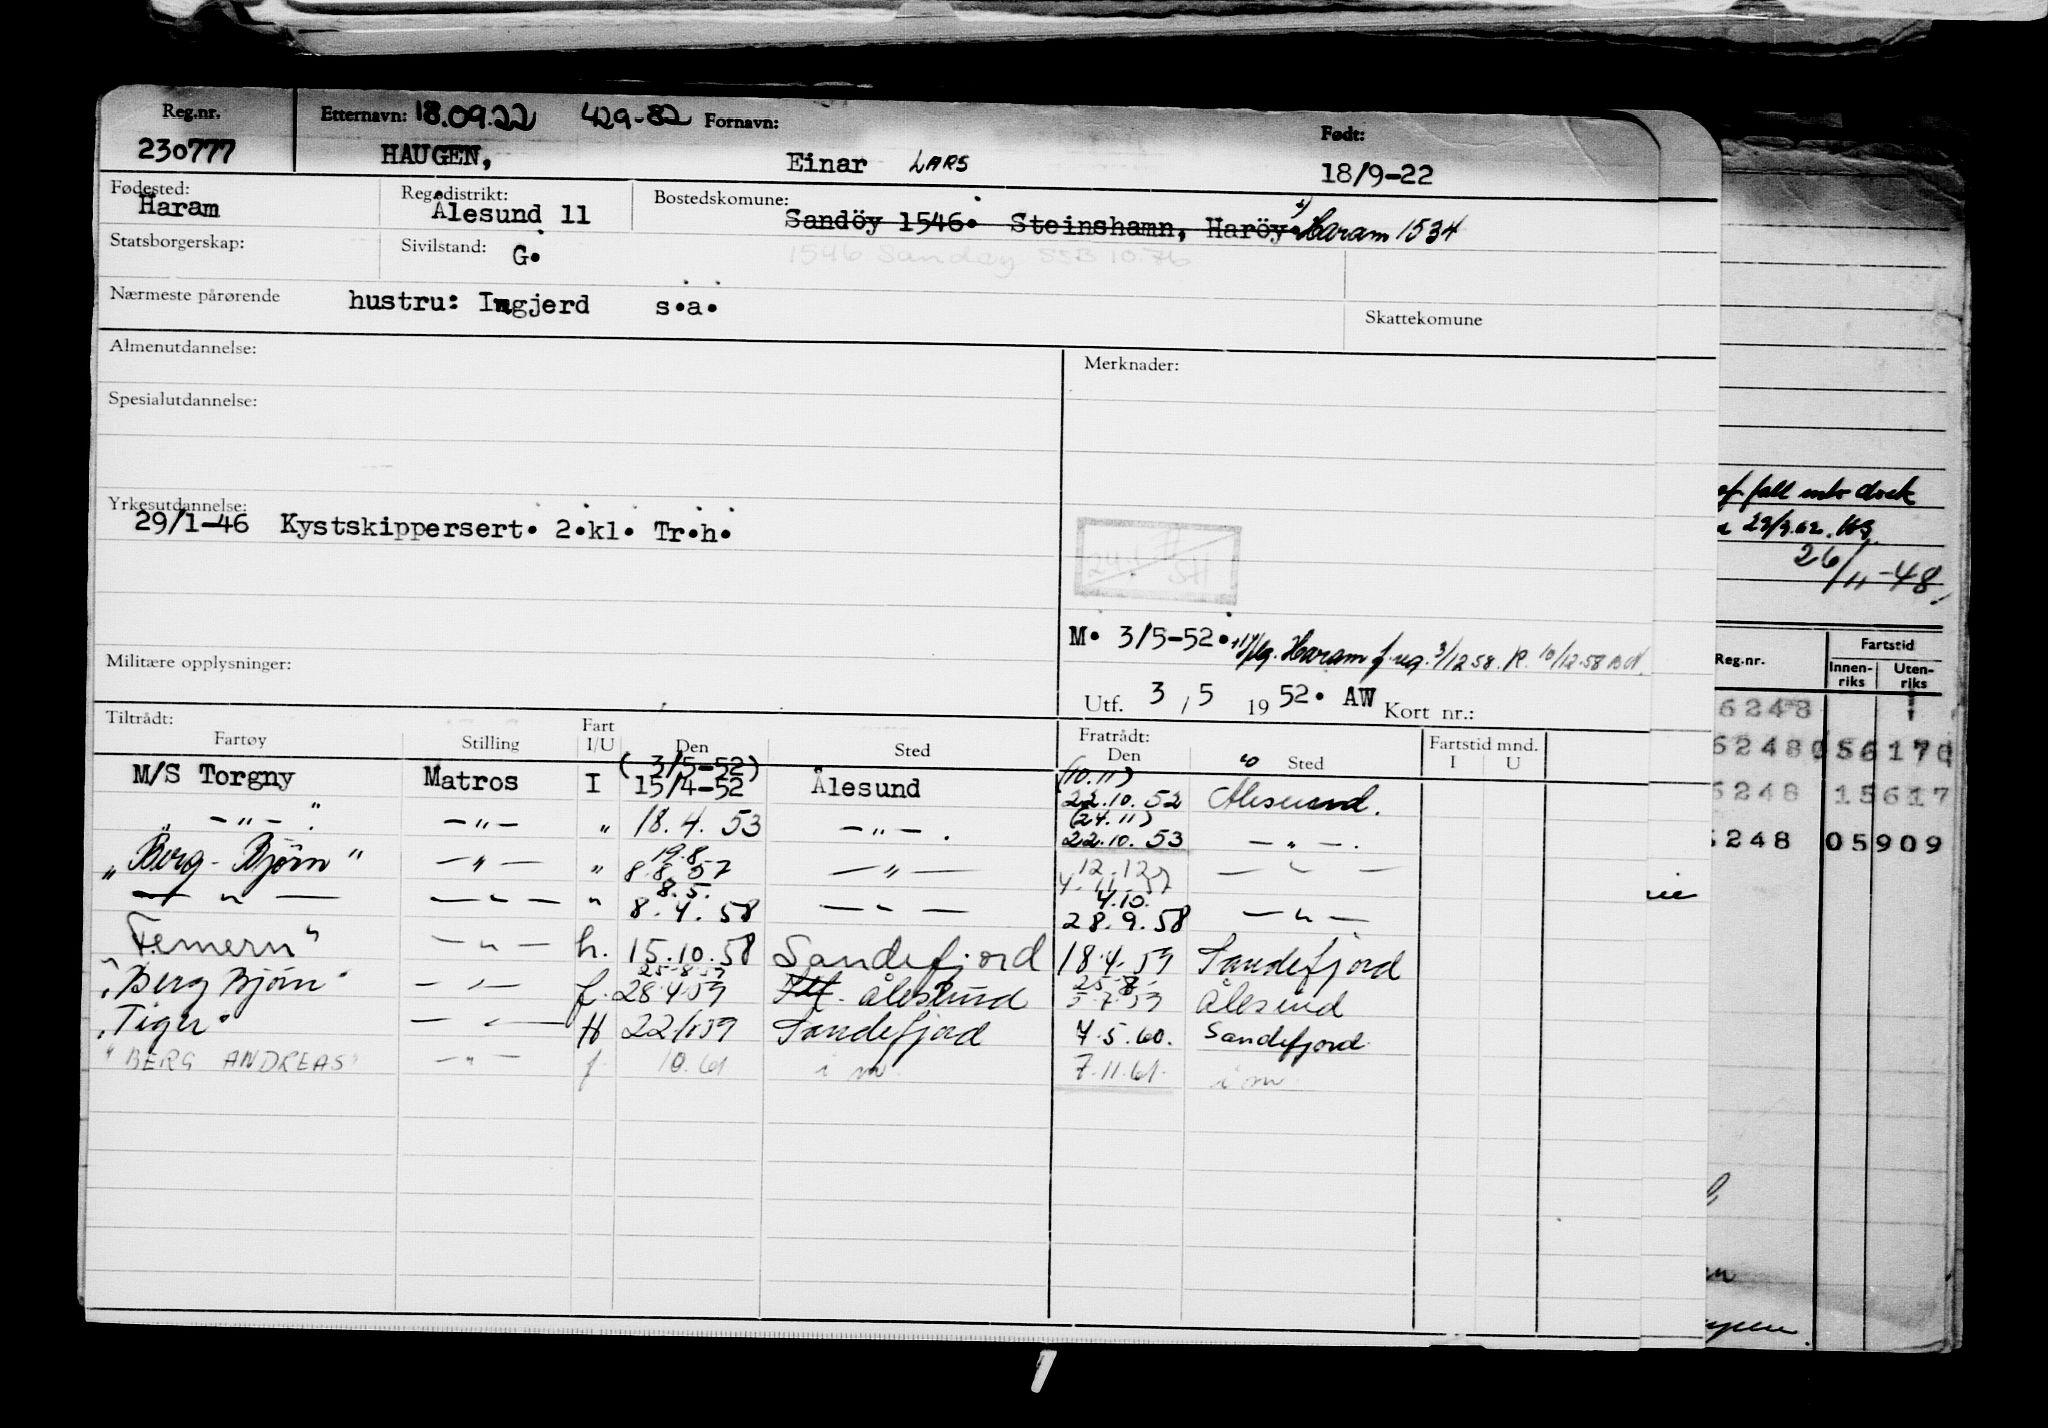 Reg.nr. Etternavn: 18.09.22 429-82 Fornavn: Født:
230777 HAUGEN, Einar LARS 18/9-22
Fødested: Reg.distrikt: Bostedskomune:
Haram Ålesund 11 Sandöy 1546. Steinshamn, Haröy. Haram 1534
Statsborgerskap: Sivilstand: G. 1546 Sandøy SSB 10.76
Nærmeste pårørende hustru: Ingjerd s.a. Skattekomune
Almenutdannelse: Merknader:
Spesialutdannelse:
Yrkesutdannelse:
29/1-46 Kystskippersert. 2.kl. Tr.h.
M. 3/5-52. Haram 3/12 58. R. 10/12-58
Militære opplysninger:
Utf. 3 / 5 19 52. AW Kort nr.:
Tiltrådt: Fratrådt:
Fartøy Stilling Fart I/U Den Sted Den Sted Fartstid mnd. I U
(3/5-52) (10.11)
M/S Torgny Matros I 15/4-52 Ålesund 22.10.52 Ålesund.
(24.11)
" -"- " -"- " 18.4.53 -"-. 22.10.53 -"-.
19.8 12.12
"Berg-Bjørn" -"- " 8.8.57 -"- 4.11.57 -"-
8.5. 4.10.
-"- -"- " 8.4.58 -"- 28.9.58 -"-
Femern" -"- h. 15.10.58 Sandefjord 18.4.59 Sandefjord
25.8.59 25.8.
"Berg Bjørn" -"- f. 28.4.59 Ålesund 5.7.59 Ålesund
"Tiger" -"- H 22/10 59 Sandefjord 7.5.60. Sandefjord
"BERG ANDREAS" -"- f 10.61 i m 7.11.61. i m
fall dock
29/9.62.
26/11-48.
Reg.nr. Fartstid
Innenriks Utenriks
6248
6248 056170
6248 15617
6248 05909